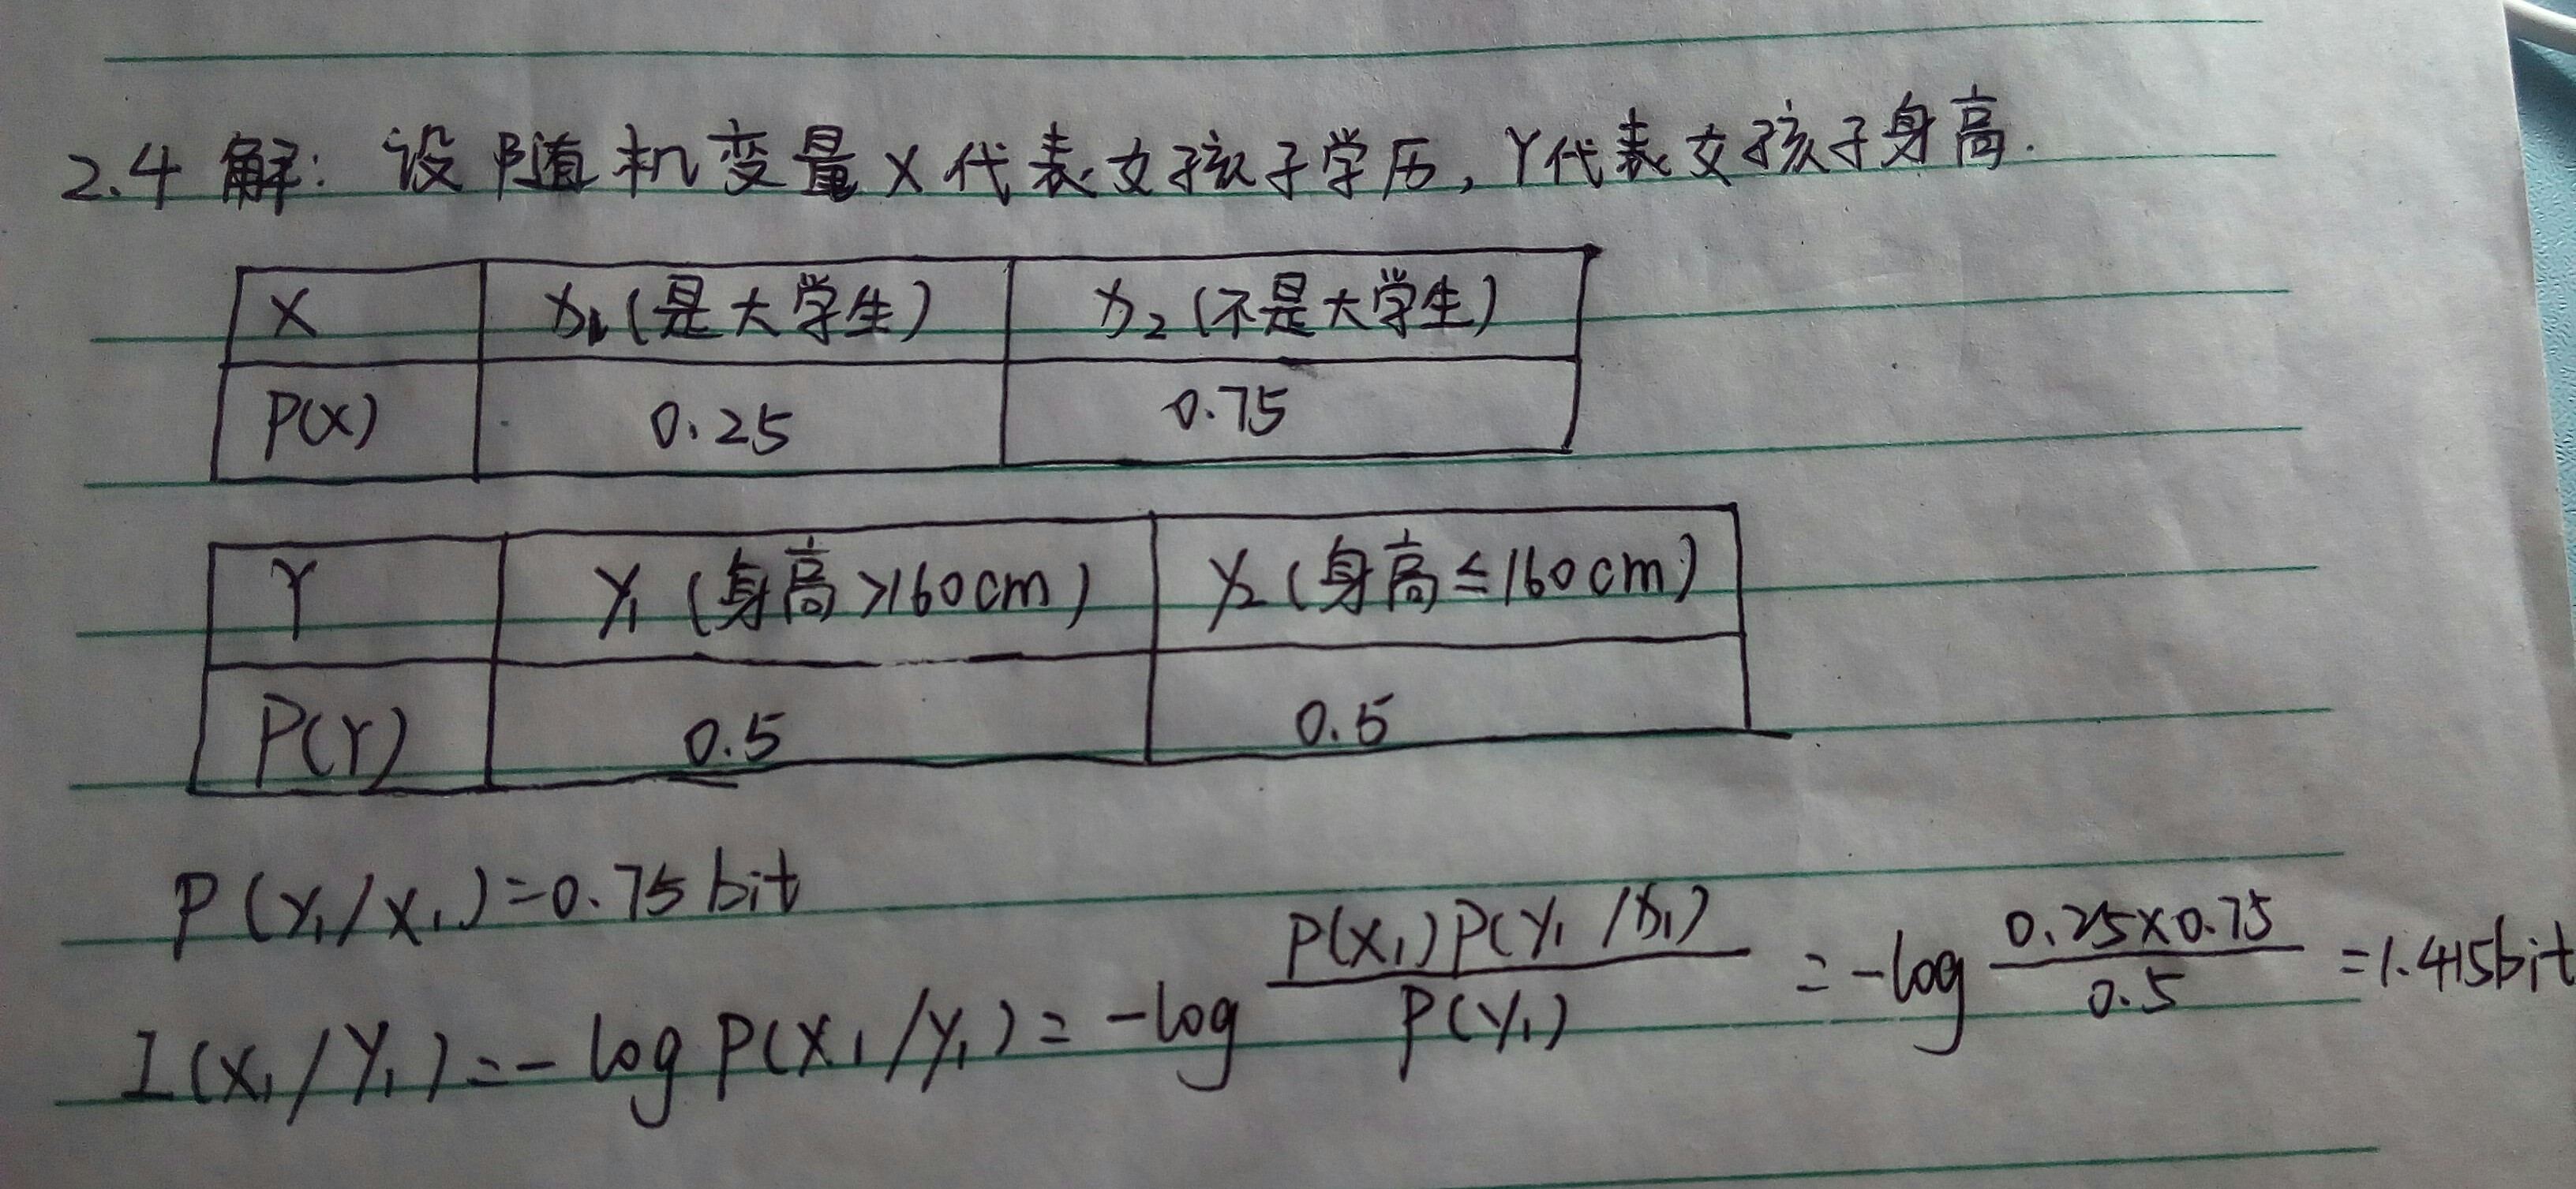 2.4 解: 设随机变量X代表女孩子学历, Y代表女孩子身高.
X x₁(是大学生) x₂(不是大学生)
P(X) 0.25 0.75
Y y₁(身高>160cm) y₂(身高≤160cm)
P(Y) 0.5 0.5
P(y₁/x₁)=0.75bit
I(x₁/y₁)=-log P(x₁/y₁)=-log \frac{P(x₁)P(y₁/x₁)}{P(y₁)}=-log \frac{0.25×0.75}{0.5}=1.415bit